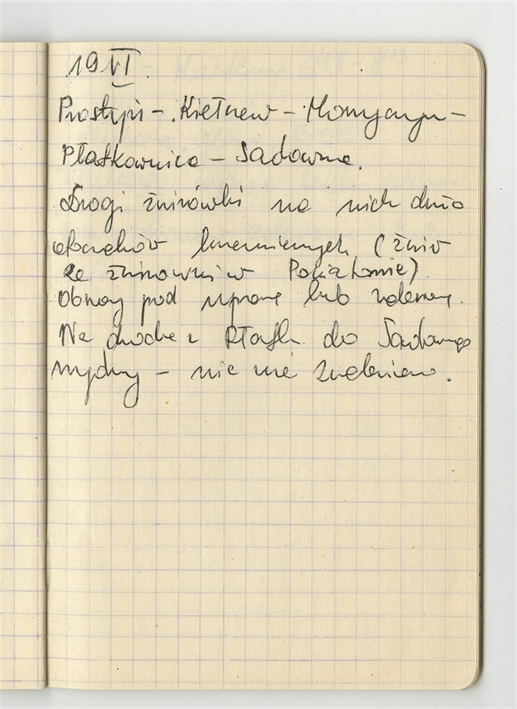 19 VI.
Prostyń - Kiełczew - Morzyczyn -
Płatkownica - Sadowne.
Drogi żwirówki na nich dużo
okruchów krzemiennych (żwir
ze żwirowni w
pod uprawę lub
Na drodze z Płatk. do Sadownego
wydmy - nie nie znaleziono.